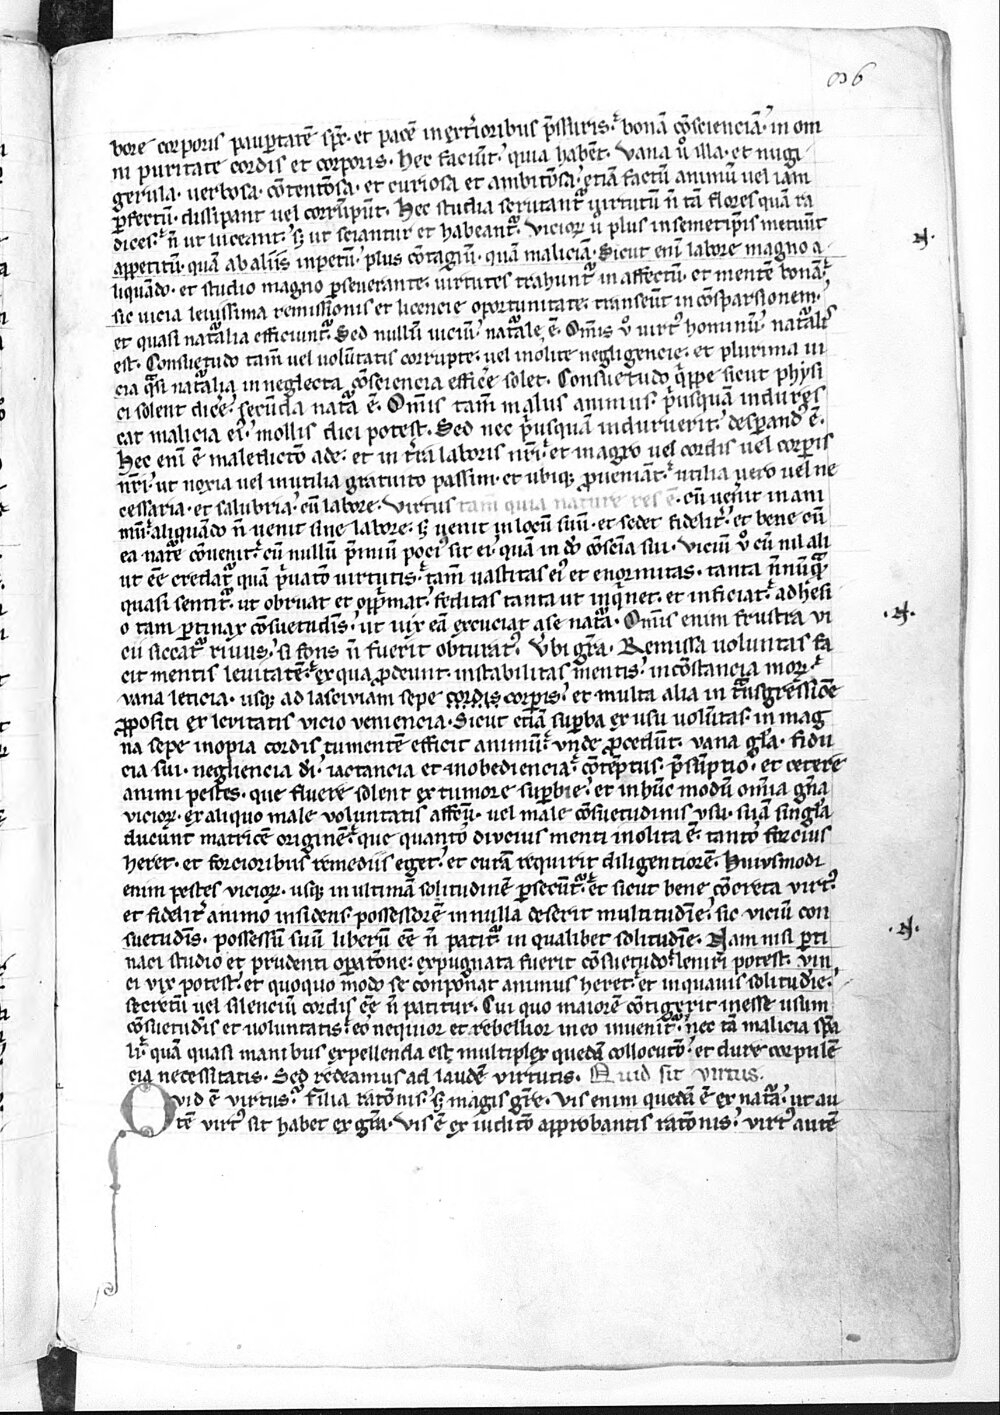 036
bore corporis paup̱tatē sp̄c. et pacē in ext'ioribus p̄ssuris. bonā cōscienciā. in om
ni puritate cordis et corporis. Hec faciūt. quia habēt. Vana ů illa. et nugi
gerula. uerbosa. cōtentōsa. et curiosa et ambitōsa. etiā factū animū uel iam
ꝑfectū. dissipant uel corrūpūt. Hec studia scrutantᷣ uirtutū n̄ tā flores quā ra
dices. n̄ ut luceant. sꝫ ut sciantur et habeantᷣ. Vicioꝝ ů plus in semetip̄is metuūt
appetitū. quā ab aliis inpetū. plus cōtagiū. quā maliciā. Sicut eni labore magno a
liquādo. et studio magno ꝑseuerante. uirtutes trahuntᷣ in affectū. et mentē bonā.
sic uicia leuissima remissionis et licencie oportunitate. transeūt in cōsparsionem.
et quasi natᷣalia efficiuntᷣ. Sed nullū uiciū. natᷣale ē. Om̄is ů uirt' hominū. natᷣalis
est. Consuetudo tam̄ uel uolūtatis corrupte. uel inolite negligencie. et plurima ui
cia q̄si natᷣalia in neglecta cōsciencia effic'e solet. Consuetudo q̄ppe sicut physi
ci solent dic'e. secūda natᷣa ē. Om̄is tam̄ malus animus. p'usquā indures
cat malicia ei'. mollis dici potest. Sed nec p'usquā induruerit. desꝑand' ē.
Hec eni ē maledictō ade. et in t'ra laboris n̄ri. et in agro uel cordis uel corꝑis
n̄ri. ut noxia uel inutilia gratuito passim. et ubiqꝫ ꝓueniāt. utilia uero uel ne
cessaria. et salubria. cū labore. Virtus tam̄ quia nature res ē. cū uenit in ani
mū. aliquando n̄ uenit sine labore. sꝫ uenit in locū suū. et sedet fidelit'. et bene cū
ea nat'e cōuenit. cū nullū p̄miū poci' sit ei. quā in dō cōsc̄ia sui. Viciū ů cū nil ali
ut eē credatᷣ. quā p'uatō uirtutis. tam̄ uastitas ei' et enormitas. tanta nōnūqᷓ
quasi sentitᷣ. ut obruat et opp'mat. feditas tanta ut inq'net. et inficiat. adhesi
o tam ꝑtinax cōsuetudīs. ut uix eā excuciat a se natᷣa. Om̄is enim frustra vi
cii siccatᷣ riuus. si fons n̄ fuerit obturat'. V̄bi gr̄a. Remissa uoluntas fa
cit mentis leuitatē. ex qua ꝓdeunt. instabilitas mentis. inconstancia moꝝ.
vana leticia. usqꝫ ad lasciuiam sepe cordis corꝑis. et multa alia in tᷣnsgressiōe
ꝓpositi ex leuitatis vicio veniencia. Sicut etiā suꝑba ex usu uolūtas. in mag
na sepe inopia cordis tumentē efficit animū. vnde ꝓcedūt. vana gl̄a. fidu
cia sui. negliencia dī. iactancia et inobediencia. cōtēptus. p̄sūptio. et cetere
animi pestes. que fluere solent ex tumore suꝑbie. et in hūc modū om̄ia gn̄a
vicioꝝ. ex aliquo male voluntatis affeū. vel male cōsuetudinis vsu. suā singl̄a
ducunt matricē originē. que quantō diucius menti inolita ē. tantō forcius
heret. et forcioribus remediis eget. et curā requirit diligentiorē. Huiusmodi
enim pestes vicioꝝ. usqꝫ in ultimā solitudinē ꝑsecūtᷣ. et sicut bene cōcreta virt'.
et fidelit' animo insidens. possessorē in nulla deserit multitudīe. sic viciū con
suetudīs. possessū suū liberū eē n̄ patitᷣ. in qualibet solitudīe. Nam nisi ꝑti
naci studio et prudenti oꝑatōne. expugnata fuerit cōsuetudo. leniri potest. vin
ci vix potest. et quoquo modo se componat animus heret. et in quauis solitudīe.
secretū vel silenciū cordis eē n̄ patitur. Cui quo maiorē cōtigerit inesse usum
cōsuetudīs et uoluntatis. eo nequior et rebellior in eo inuenitᷣ. nec tā malicia sp̄a
lis. quā quasi manibus expellenda est. multiplex quedā collocutō. et dure corpulē
cia necessitatis. Sed redeamus ad laudē virtutis. Quid sit virtus.
Quid ē virtus. Filia ratōnis. sꝫ magis gr̄e. Vis enim quedā ē ex natᷣa. ut au
tē virt' sit habet ex gr̄a. Vis ē ex iudicio approbantis ratōnis. virt' autē